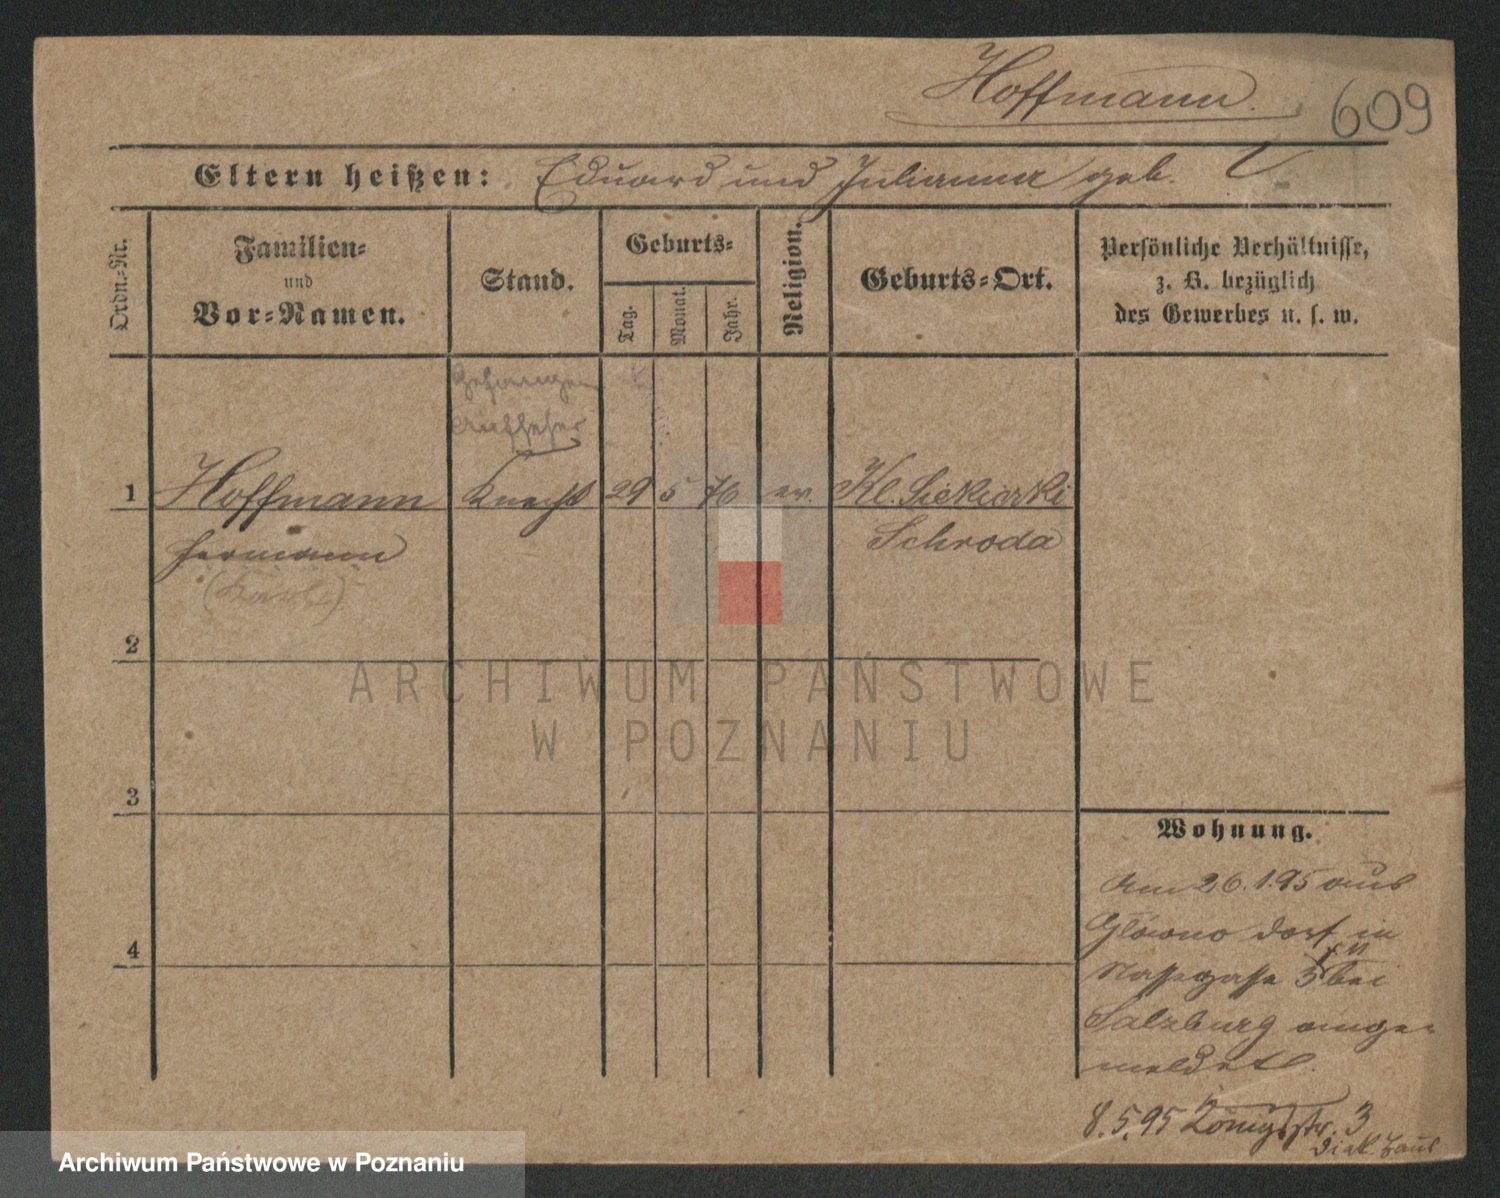 Hoffmann.
609
Eltern heißen: Eduard und Julianna geb.
Ordn.-Nr.
Familien-
und
Vor-Namen.
Stand.
Geburts-
Tag.
Monat.
Jahr.
Religion.
Geburts-Ort.
Persönliche Verhältnisse,
z. B. bezüglich
des Gewerbes u. s. w.
Gefangen
Aufseher
1 Hoffmann Knecht 29 5 76 ev. Kl. Siekierki
Hermann Schroda
2
3
4
ARCHIWUM PAŃSTWOWE
W POZNANIU
Wohnung.
Am 26.1.95 aus
Glowno dorf in
Naßegasse 5 bei
Salzburg ange-
meldet.
8.5.95 Königsstr. 3
Archiwum Państwowe w Poznaniu